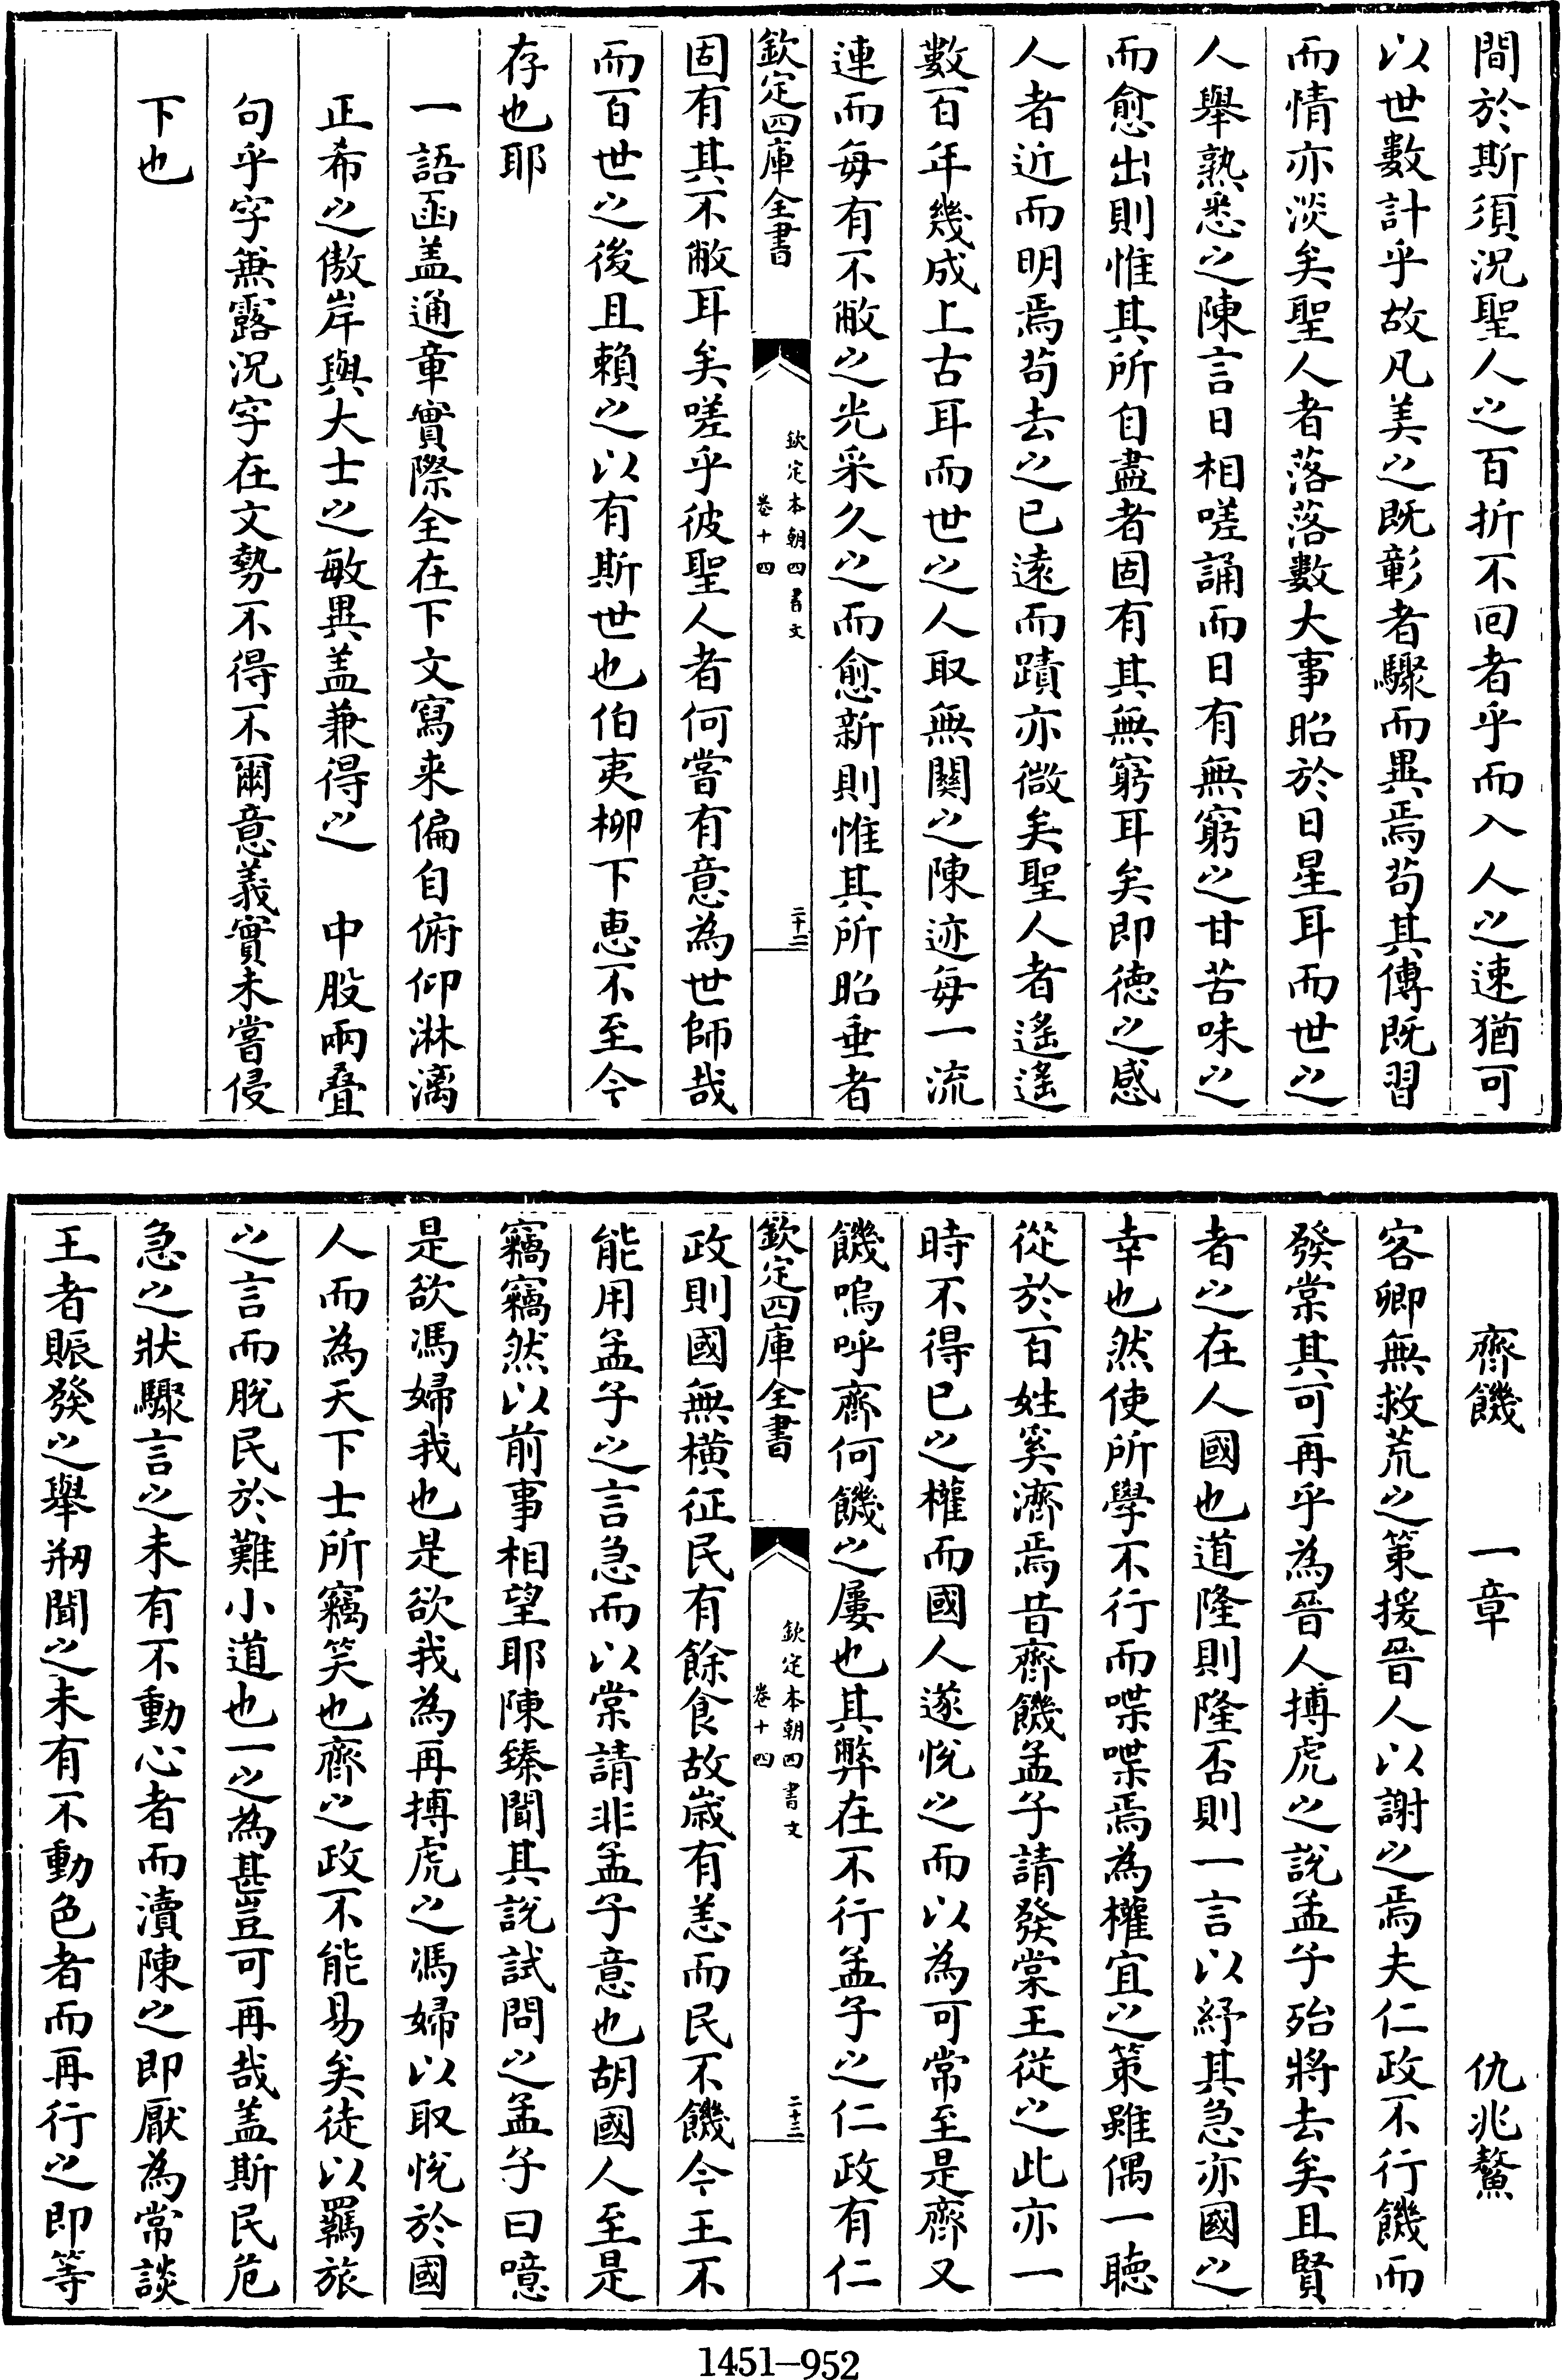 間於斯須況聖人之百折不回者乎而入人之速猶可
以世數計乎故凡美之既彰者驟而異焉茍其傳既習
而情亦淡矣聖人者落落數大事昭於日星耳而世之
人舉熟悉之陳言日相嗟誦而日有無窮之甘苦味之
而愈出則惟其所自盡者固有其無窮耳矣即徳之感
人者近而明焉茍去之已逺而蹟亦微矣聖人者遙遙
數百年幾成上古耳而世之人取無闗之陳迹每一流
連而每有不敝之光采久之而愈新則惟其所昭垂者
欽定四庫全書
欽定本朝四書文
卷十四
二十二
固有其不敝耳矣嗟乎彼聖人者何嘗有意為世師哉
而百世之後且頼之以有斯世也伯夷栁下惠不至今
存也耶
一語函盖通章實際全在下文寫来偏自俯仰淋漓
正希之傲岸與大士之敏異盖兼得之　中股兩疊
句乎字無露況字在文勢不得不爾意義實未嘗侵
下也
齊饑　一章　仇兆鰲
客卿無救荒之策援晉人以謝之焉夫仁政不行饑而
發棠其可再乎為晉人搏虎之說孟子殆將去矣且賢
者之在人國也道隆則隆否則一言以紓其急亦國之
幸也然使所學不行而喋喋焉為權宜之策雖偶一聴
從於百姓奚濟焉昔齊饑孟子請發棠王從之此亦一
時不得已之權而國人遂悅之而以為可常至是齊又
饑嗚呼齊何饑之屢也其弊在不行孟子之仁政有仁
欽定四庫全書
欽定本朝四書文
卷十四
二十三
政則國無橫征民有餘食故嵗有恙而民不饑今王不
能用孟子之言急而以棠請非孟子意也胡國人至是
竊竊然以前事相望耶陳臻聞其說試問之孟子曰噫
是欲馮婦我也是欲我為再搏虎之馮婦以取悅於國
人而為天下士所竊笑也齊之政不能易矣徒以羈旅
之言而脫民於難小道也一之為甚豈可再哉盖斯民危
急之狀驟言之未有不動心者而瀆陳之即厭為常談
王者賑發之舉剏聞之未有不動色者而再行之即等
1451—952